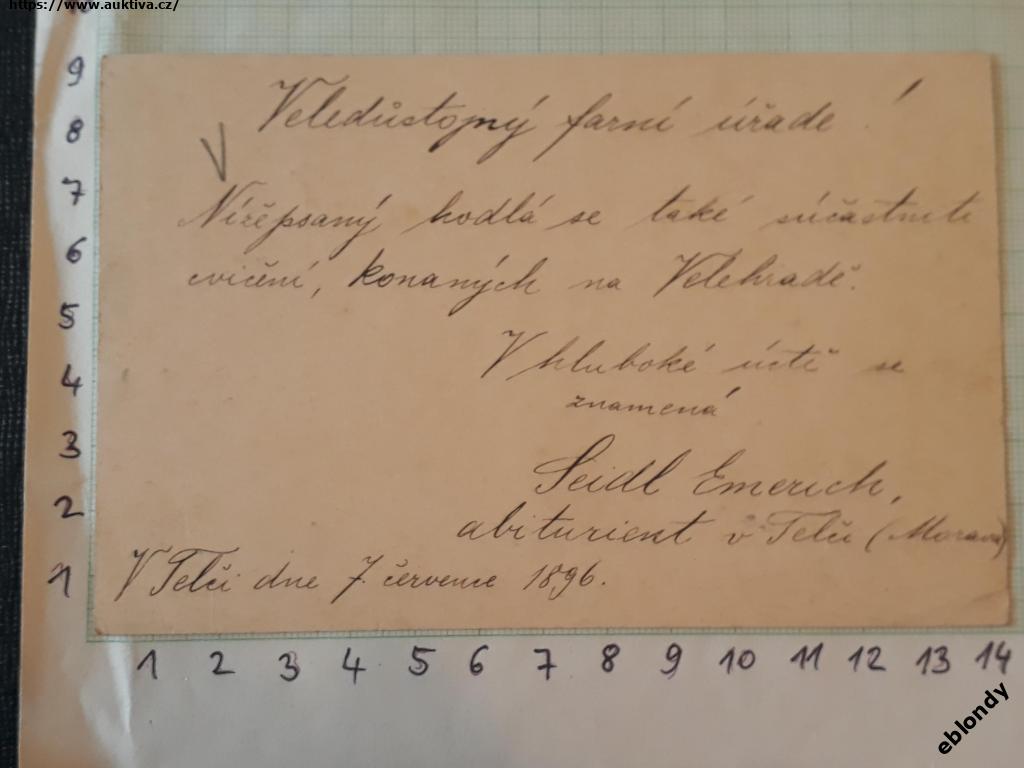 https://www.auktiva.cz/
Veledůstojný farní úřade!
V
Nížepsaný hodlá se také súčastniti
cvičení, konaných na Velehradě.
V hluboké úctě se
znamená
Seidl Emerich,
abiturient v Telči (Morava)
V Telči dne 7. července 1896.
9
8
7
6
5
4
3
2
1
1 2 3 4 5 6 7 8 9 10 11 12 13 14
eblondy